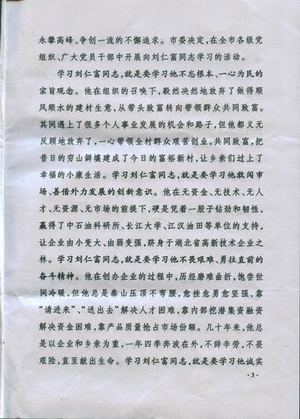 永攀高峰、争创一流的不懈追求。市委决定，在全市各级党
组织、广大党员干部中开展向刘仁富同志学习的活动。
学习刘仁富同志，就是要学习他不忘根本、一心为民的
宗旨观念。他在组织的召唤下，毅然决然地放弃了做得顺
风顺水的建材生意，从带头致富转向带领群众共同富裕。
其间遇上了很多个人事业发展的机会和路子，但他都义无
反顾地放弃了，一心带领全村群众艰苦创业，共同致富，把
昔日的穷山僻壤建成了今日的富裕新村，让乡亲们过上了
幸福的小康生活。学习刘仁富同志，就是要学习他敢闯市
场、善借外力发展的创新意识。他在无资金、无技术、无人
才、无资源、无市场的前提下，硬是凭着一股子钻劲和韧性，
赢得了中石油科研所、长江大学、江汉油田等单位的支持，
让企业由小变大、由弱变强，跻身于湖北省高新技术企业之
林。学习刘仁富同志，就是要学习他不畏艰难、勇往直前的
奋斗精神。他在创办企业的过程中，历经磨难曲折，饱尝世
间冷暖，但他总是泰山压顶不弯腰，愈挫愈勇愈坚强，靠
“请进来”、“送出去”解决人才困难，靠内部挖潜集资融资
解决资金困难，靠产品质量抢占市场份额。几十年来，他总
是以企业和乡亲为重，一年四季奔波在外，不辞辛劳，不畏
艰险，直至献出生命。学习刘仁富同志，就是要学习他诚实
·3·